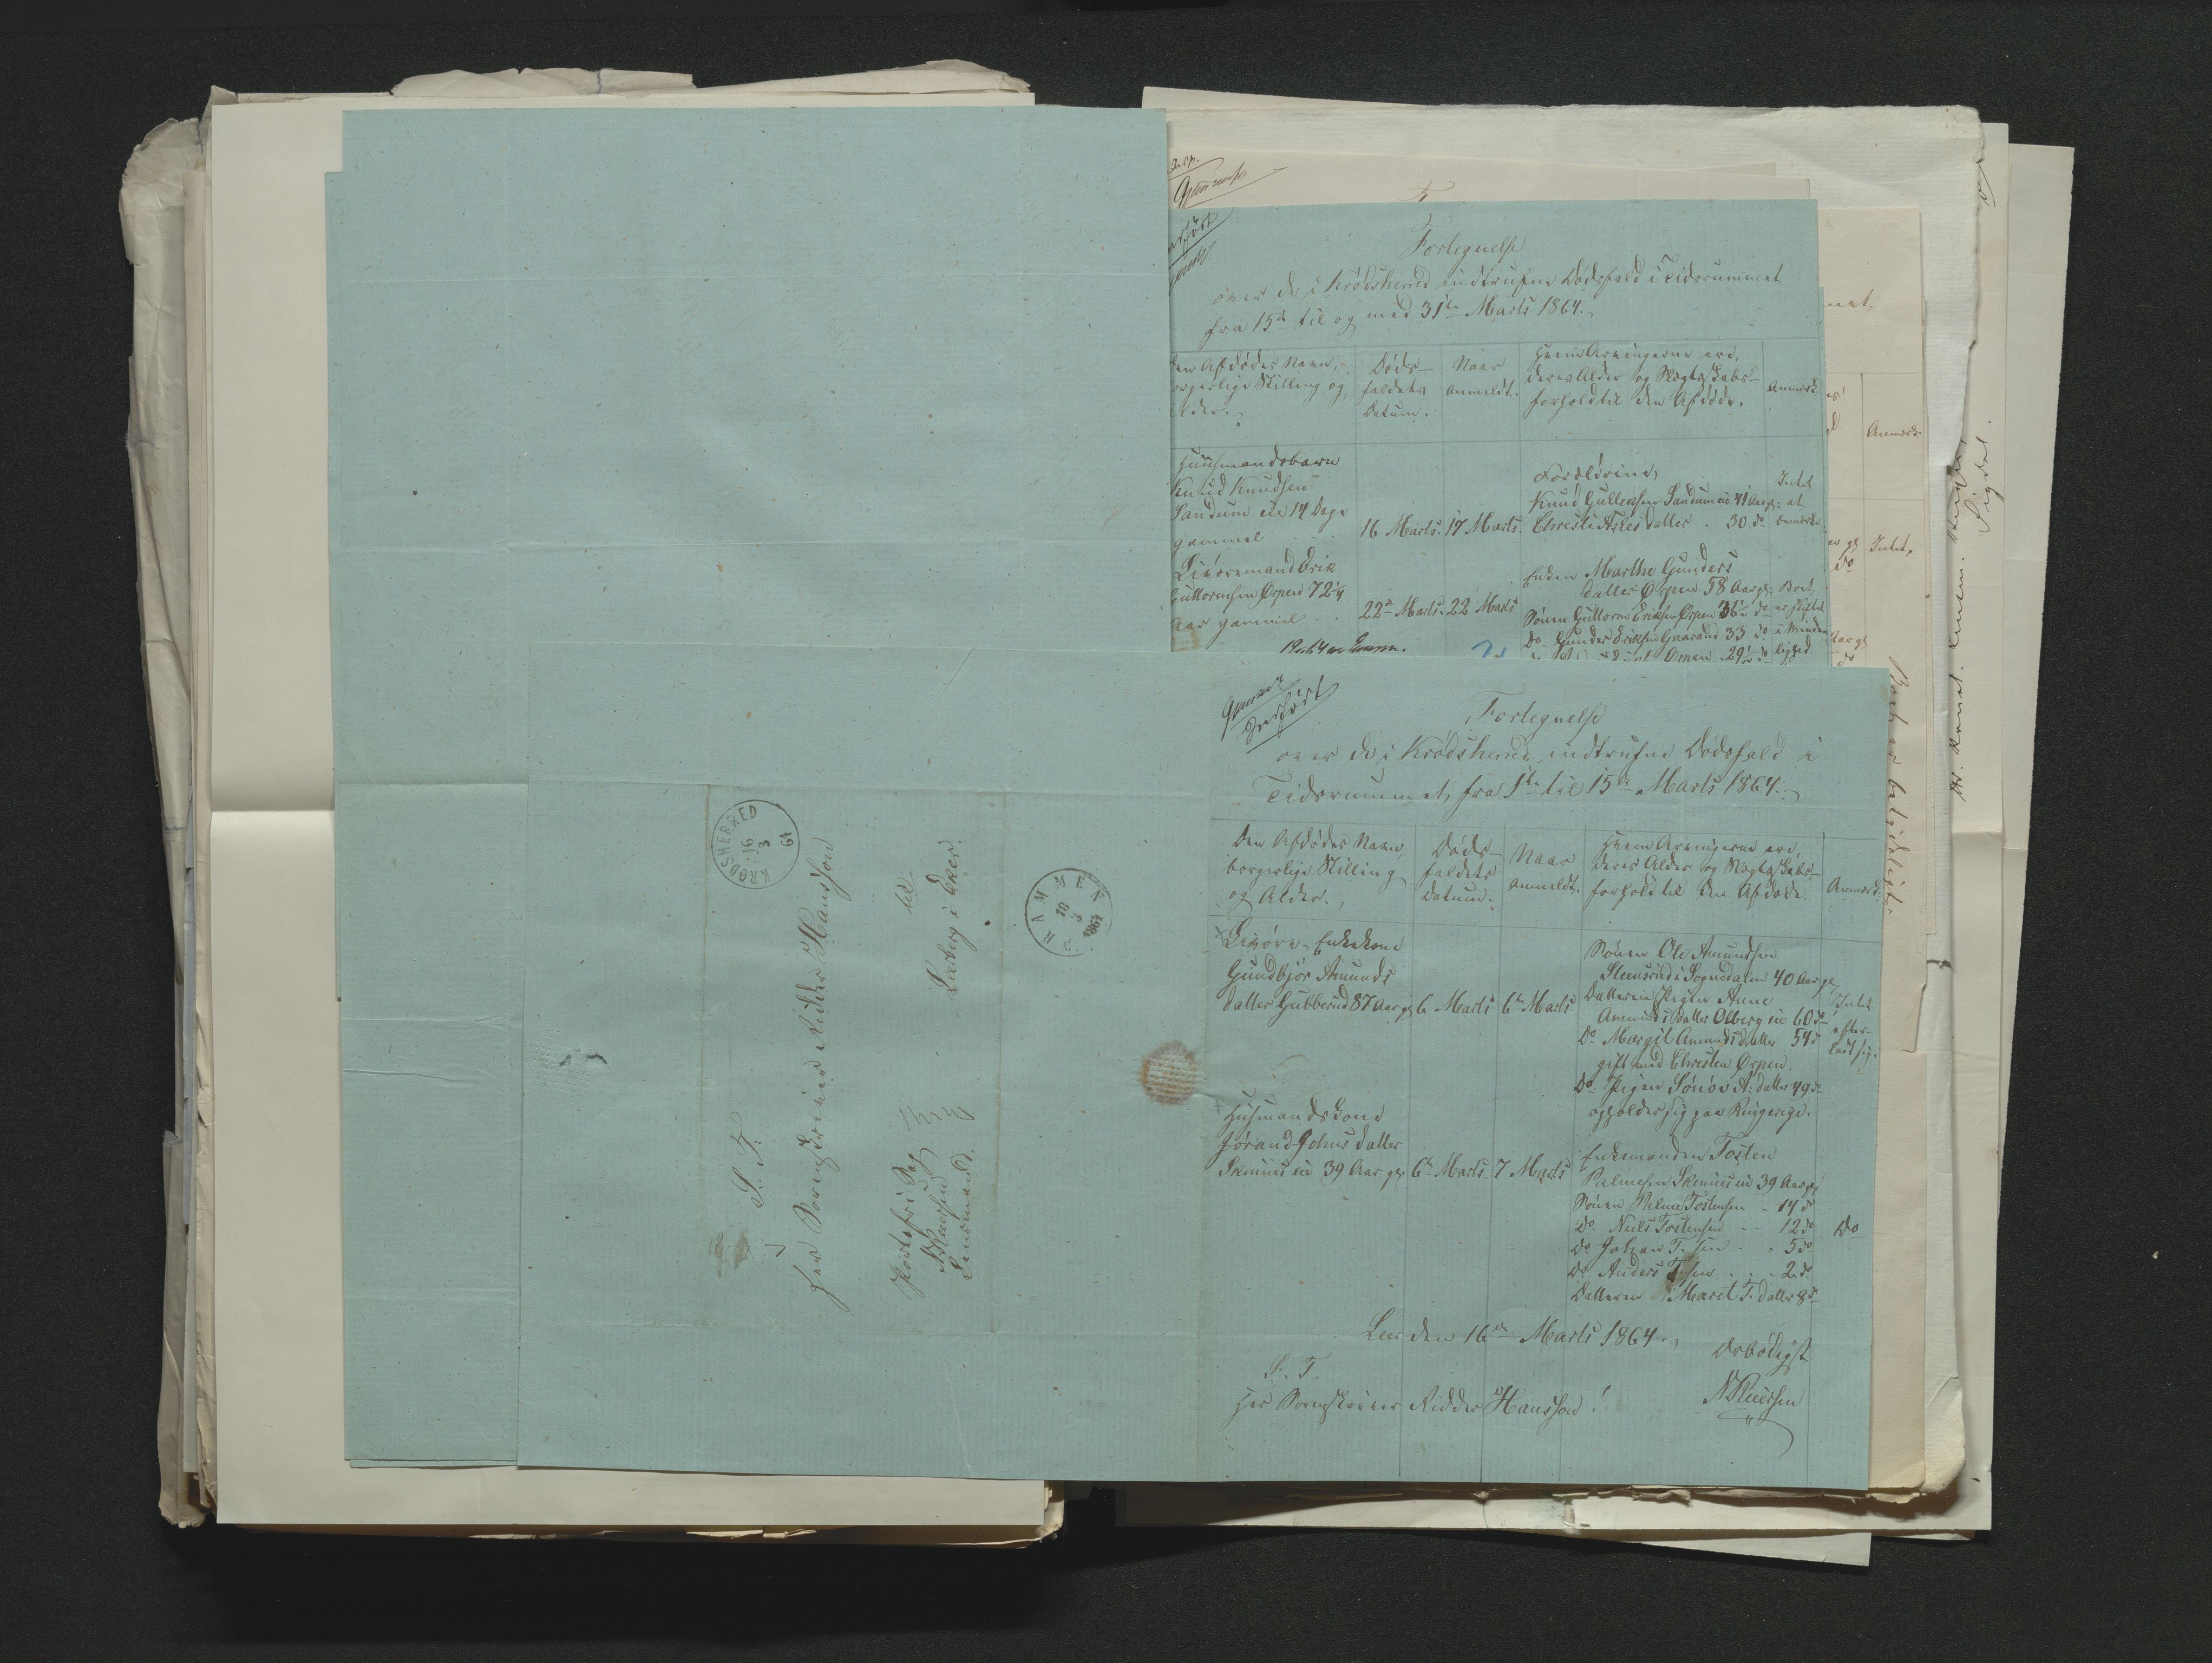 Fortegnelse
over de i Krødsherred indtrufne Dødsfald i Tidsrummet
fra 15de til og med 31te Marts 1864.
Den Afdødes Navn,
borgerlige Stilling og
Alder.
Døds-
faldets
Datum.
Naar
anmeldt.
Hvem Arvingerne ere,
deres Alder og Slægtskabs-
forhold til den Afdøde.
Anmærk.
Huusmandsbarn
Knud Knudsen
Sandum eie 14 Dage
gammel
16 Marts.
17 Marts.
Forældrene,
Knud Gulleksen Sandum eie 41 Aar gl.
Christi Asles datter . 30 do
Intet
at
bemærke
Livøremand Erik
Guttormsen Ørpen 72 1/4
Aar gammel
22de Marts.
22 Marts
Enken Marthe Gunders
datter Ørpen 58 Aar gl.
Sønen Guttorm Eriksen Ørpen 36 1/2 do
Do Gunder Eriksen Gaarand 33 do
Ørpen 29 1/2 do
Boet
er skiftet
i Minde-
lighed.
Anmærk.
Intet.
Boet er betydeligt.
Sigdal.
Fortegnelse
over de i Krødsherred indtrufne Dødsfald i
Tidsrummet fra 1ste til 15de Marts 1864.
Den Afdødes Navn,
borgerlige Stilling
og Alder.
Døds-
faldets
Datum.
Naar
anmeldt.
Hvem Arvingerne ere,
deres Alder og Slægtskabs-
forhold til den Afdøde.
Anmærk.
Livøre-Enkekone
Gundbjør Amunds
datter Gubberud 87 Aar gl.
6 Marts
6te Marts
Sønen Ole Amundsen
Steensrud i Sognedalen 40 Aar gl.
Datteren Pigen Anne
Amundsdatter Olberg eie 60 do
Do Margit Amundsdatter 54 do
gift med Christen Ørpen.
Do Pigen Sønøv A. datter 49 do
opholder sig paa Ringerige.
Intet
efter-
ladt sig.
Husmandskone
Jørand Johns datter
Skinnes eie 39 Aar gl.
6te Marts.
7 Marts
Enkemanden Tosten
Palmesen Skinnes eie 39 Aar gl.
Sønen Palme Tostensen - 14 do
Do Niels Tostensen - 12 do
Do Johan T. sen - 5 do
Do Anders T. sen - 2 do
Datteren Marit T. datter 8 do
Do
Leer den 16de Marts 1864.
Ærbødigst
S. T.
Her Sorenskriver Ridder Hansson!
KRØDSHERRED
16
3
64
S. T.
Her Sorenskriver Ridder Hansson
til
Portofri Sag
Lensmand.
DRAMMEN
18
3
1864